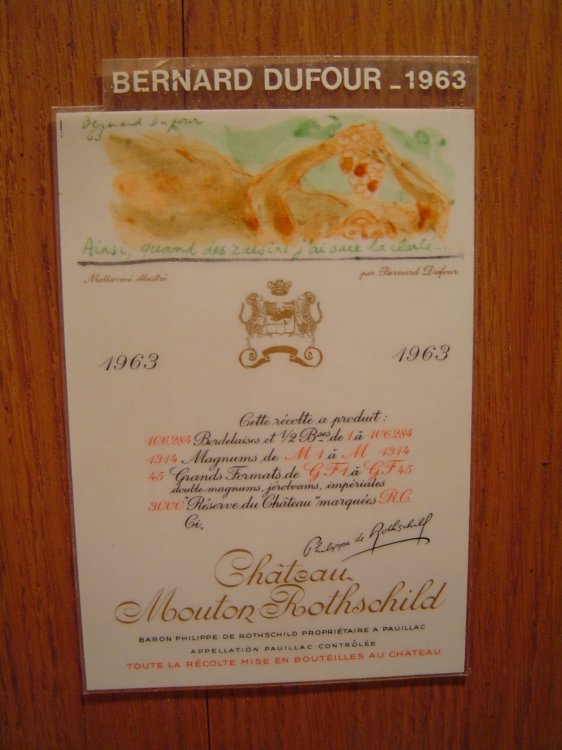 BERNARD DUFOUR - 1963
Bernard Dufour
63
Ainsi, quand des raisins j'ai sucé la clarté....
Mallarmé illustré par Bernard Dufour
1963 1963
Cette récolte a produit :
106.284 Bordelaises et 1/2 Bses de 1 à 106.284
1314 Magnums de M 1 à M 1314
45 Grands Formats de GF1 à GF 45
double-magnums, jéroboams, impériales
3000 "Réserve du Château" marquées R.C.
Ci,
Philippe de Rothschild
Château
Mouton Rothschild
BARON PHILIPPE DE ROTHSCHILD PROPRIÉTAIRE A PAUILLAC
APPELLATION PAUILLAC CONTRÔLÉE
TOUTE LA RÉCOLTE MISE EN BOUTEILLES AU CHÂTEAU